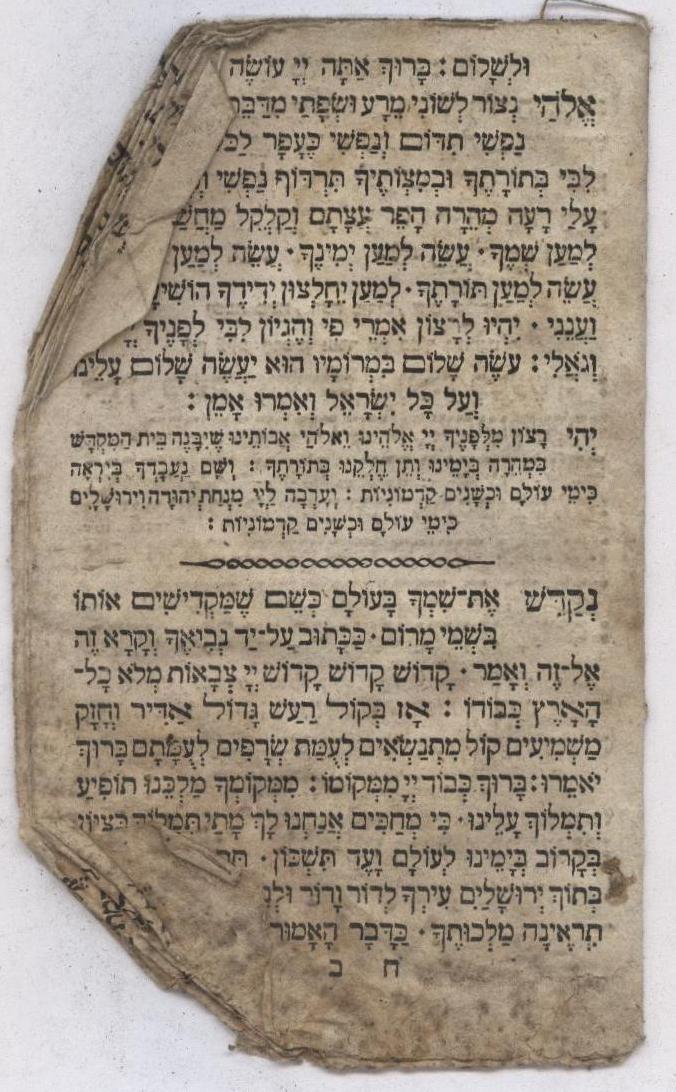 וּלְשָׁלוֹם: בָּרוּךְ אַתָּה יְיָ עוֹשֶׂה
אֱלֹהַי נְצוֹר לְשׁוֹנִי מֵרָע וּשְׂפָתַי מִדַּבֵּר
נַפְשִׁי תִדּוֹם וְנַפְשִׁי כֶּעָפָר לַכֹּ
לִבִּי בְּתוֹרָתֶךָ וּבְמִצְוֹתֶיךָ תִּרְדּוֹף נַפְשִׁי
עָלַי רָעָה מְהֵרָה הָפֵר עֲצָתָם וְקַלְקֵל מַחֲשַׁ
לְמַעַן שְׁמֶךָ · עֲשֵׂה לְמַעַן יְמִינֶךָ · עֲשֵׂה לְמַעַן
עֲשֵׂה לְמַעַן תּוֹרָתֶךָ · לְמַעַן יֵחָלְצוּן יְדִידֶיךָ הוֹשִׁיעָ
וַעֲנֵנִי · יִהְיוּ לְרָצוֹן אִמְרֵי פִי וְהֶגְיוֹן לִבִּי לְפָנֶיךָ
וְגֹאֲלִי: עֹשֶׂה שָׁלוֹם בִּמְרוֹמָיו הוּא יַעֲשֶׂה שָׁלוֹם עָלֵינוּ
וְעַל כָּל יִשְׂרָאֵל וְאִמְרוּ אָמֵן:
יְהִי רָצוֹן מִלְּפָנֶיךָ יְיָ אֱלֹהֵינוּ וֵאלֹהֵי אֲבוֹתֵינוּ שֶׁיִּבָּנֶה בֵּית הַמִּקְדָּשׁ
בִּמְהֵרָה בְיָמֵינוּ וְתֵן חֶלְקֵנוּ בְּתוֹרָתֶךָ: וְשָׁם נַעֲבָדְךָ בְּיִרְאָה
כִּימֵי עוֹלָם וּכְשָׁנִים קַדְמוֹנִיּוֹת: וְעָרְבָה לַיְיָ מִנְחַת יְהוּדָה וִירוּשָׁלָיִם
כִּימֵי עוֹלָם וּכְשָׁנִים קַדְמוֹנִיּוֹת:
נְקַדֵּשׁ אֶת־שִׁמְךָ בָּעוֹלָם כְּשֵׁם שֶׁמַּקְדִּישִׁים אוֹתוֹ
בִּשְׁמֵי מָרוֹם · כַּכָּתוּב עַל־יַד נְבִיאֶךָ וְקָרָא זֶה
אֶל־זֶה וְאָמַר · קָדוֹשׁ קָדוֹשׁ קָדוֹשׁ יְיָ צְבָאוֹת מְלֹא כָל־
הָאָרֶץ כְּבוֹדוֹ: אָז בְּקוֹל רַעַשׁ גָּדוֹל אַדִּיר וְחָזָק
מַשְׁמִיעִים קוֹל מִתְנַשְּׂאִים לְעֻמַּת שְׂרָפִים לְעֻמָּתָם בָּרוּךְ
יֹאמֵרוּ: בָּרוּךְ כְּבוֹד יְיָ מִמְּקוֹמוֹ: מִמְּקוֹמְךָ מַלְכֵּנוּ תוֹפִיעַ
וְתִמְלוֹךְ עָלֵינוּ · כִּי מְחַכִּים אֲנַחְנוּ לָךְ מָתַי תִּמְלוֹךְ בְּצִיּוֹן
בְּקָרוֹב בְּיָמֵינוּ לְעוֹלָם וָעֶד תִּשְׁכּוֹן ·
בְּתוֹךְ יְרוּשָׁלַיִם עִירְךָ לְדוֹר וָדוֹר
תִרְאֶינָה מַלְכוּתֶךָ · כַּדָּבָר הָאָמוּר
ח ב